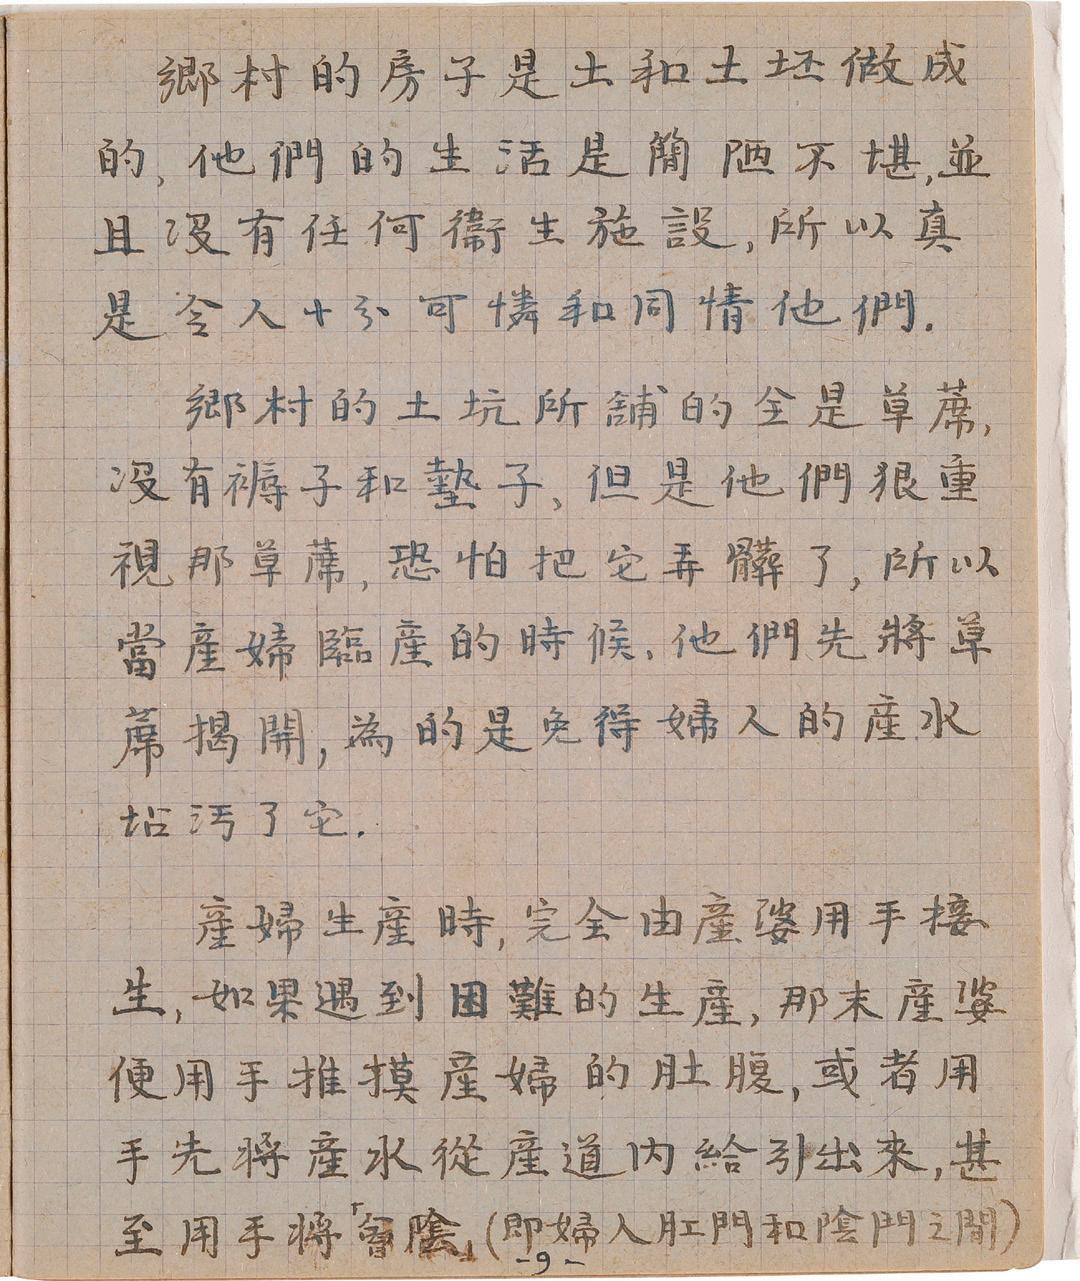 鄉村的房子是土和土坯做成
的,他們的生活是簡陋不堪,並
且没有任何衞生施設,所以真
是令人十分可憐和同情他們.
鄉村的土坑所舖的全是草蓆,
没有褥子和墊子,但是他們狠重
視那草蓆,恐怕把它弄髒了,所以
當産婦臨産的時候,他們先將草
蓆揭開,為的是免得婦人的産水
坫污了它.
産婦生産時,完全由産婆用手接
生,如果遇到困難的生産,那末産婆
便用手推摸産婦的肚腹,或者用
手先將産水從産道内給引出來,甚
至用手將「會陰」(即婦人肛門和陰門之間)
-9-